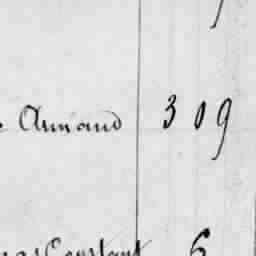 Armand 309
Constant 6